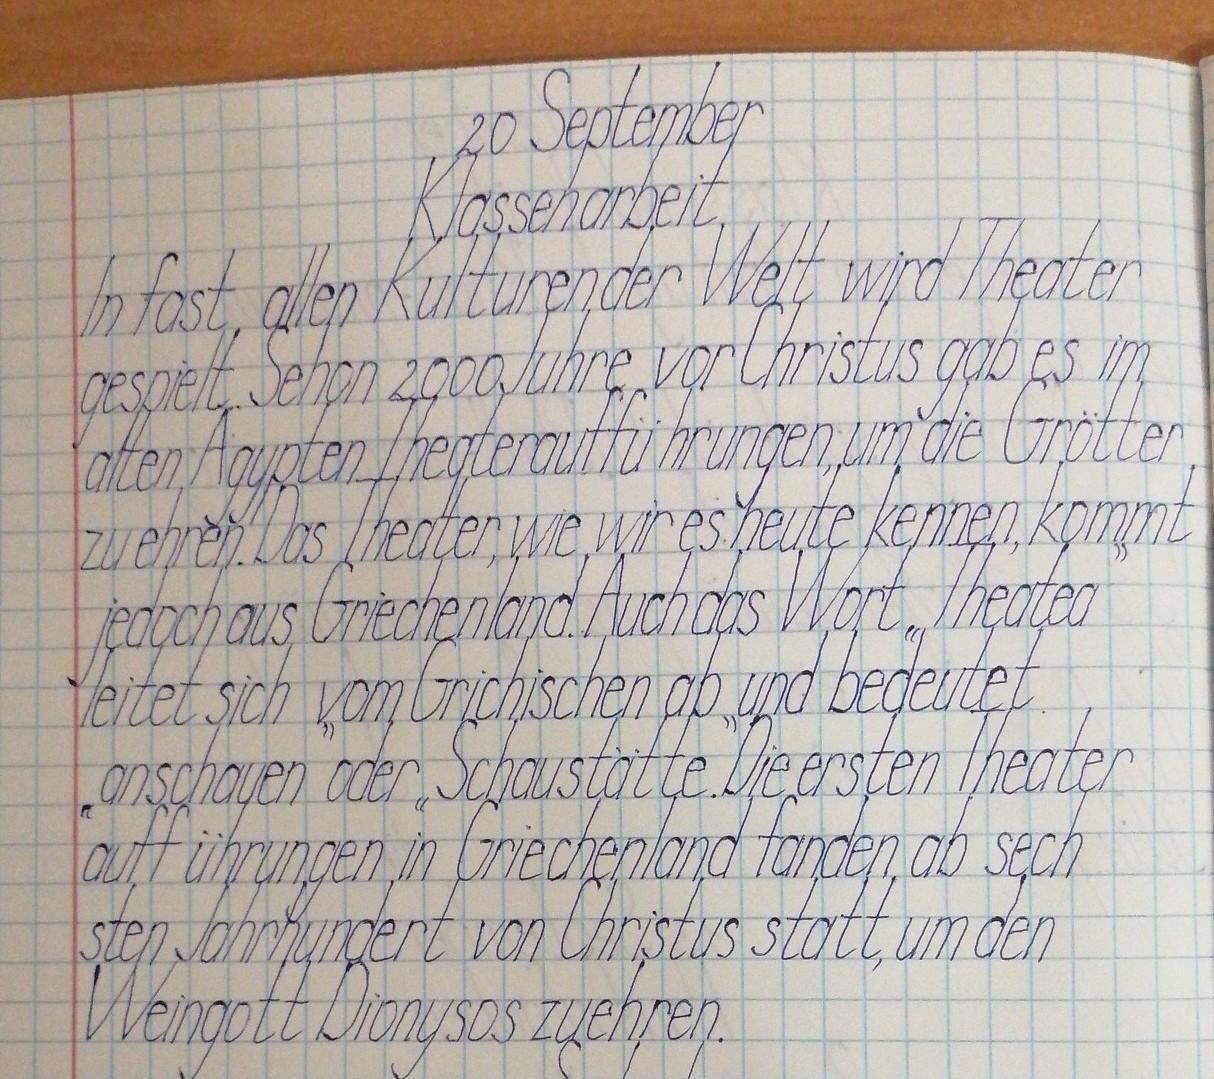 20 September
Klassenarbeit
In fast allen Kulturen der Welt wird Theater
gespielt. Schon 2000 Juhre vor Christus gab es im
alten Ägypten Theateraufführungen, um die Götter
zu ehren. Das Theater, wie wir es heute kennen, kommt
jedoch aus Griechenland. Auch das Wort „Theatea“
leitet sich vom Grichischen ab und bedeutet
„anschauen“ oder „Schaustätte“. Die ersten Theater
aufführungen in Griechenland fanden ab sech
sten Jahrhundert von Christus statt, um den
Weingott Dionysos zu ehren.